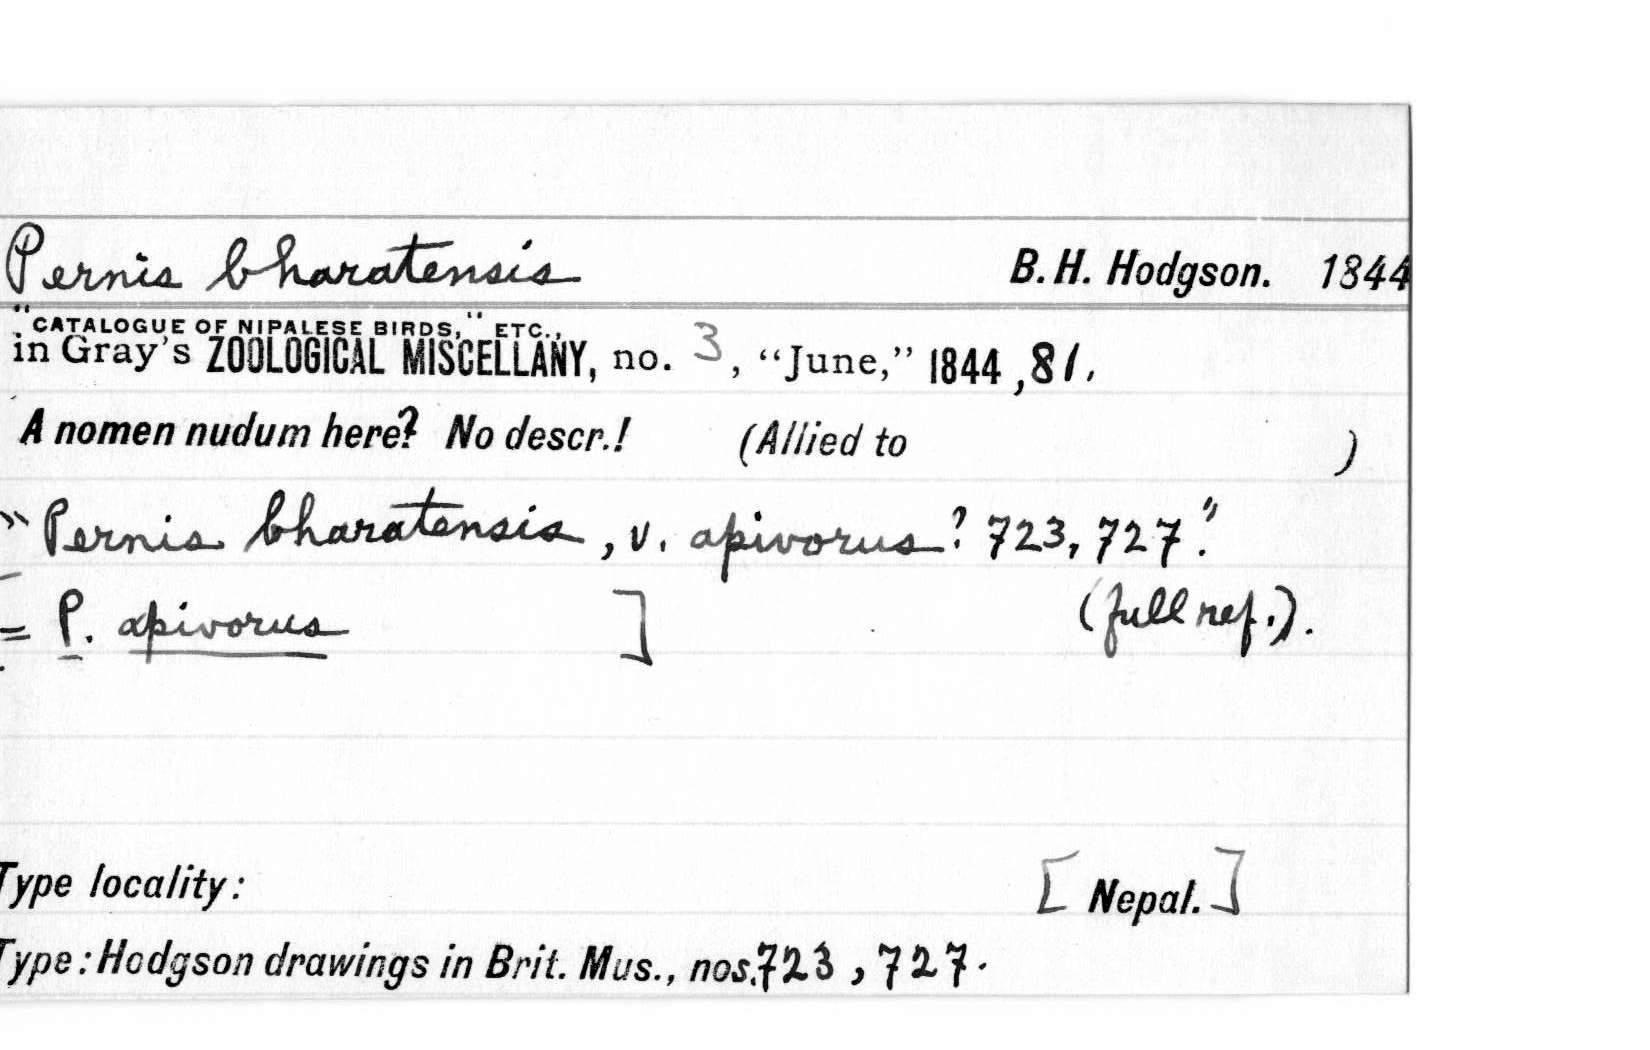 Pernis bharatensis B. H. Hodgson. 1844
"CATALOGUE OF NIPALESE BIRDS," ETC.,
in Gray's ZOOLOGICAL MISCELLANY, no. 3, "June," 1844, 81.
A nomen nudum here? No descr.! (Allied to )
" Pernis bharatensis, v. apivorus? 723, 727."
[= P. apivorus ] (full ref.).
Type locality: [Nepal.]
Type: Hodgson drawings in Brit. Mus., nos. 723, 727.